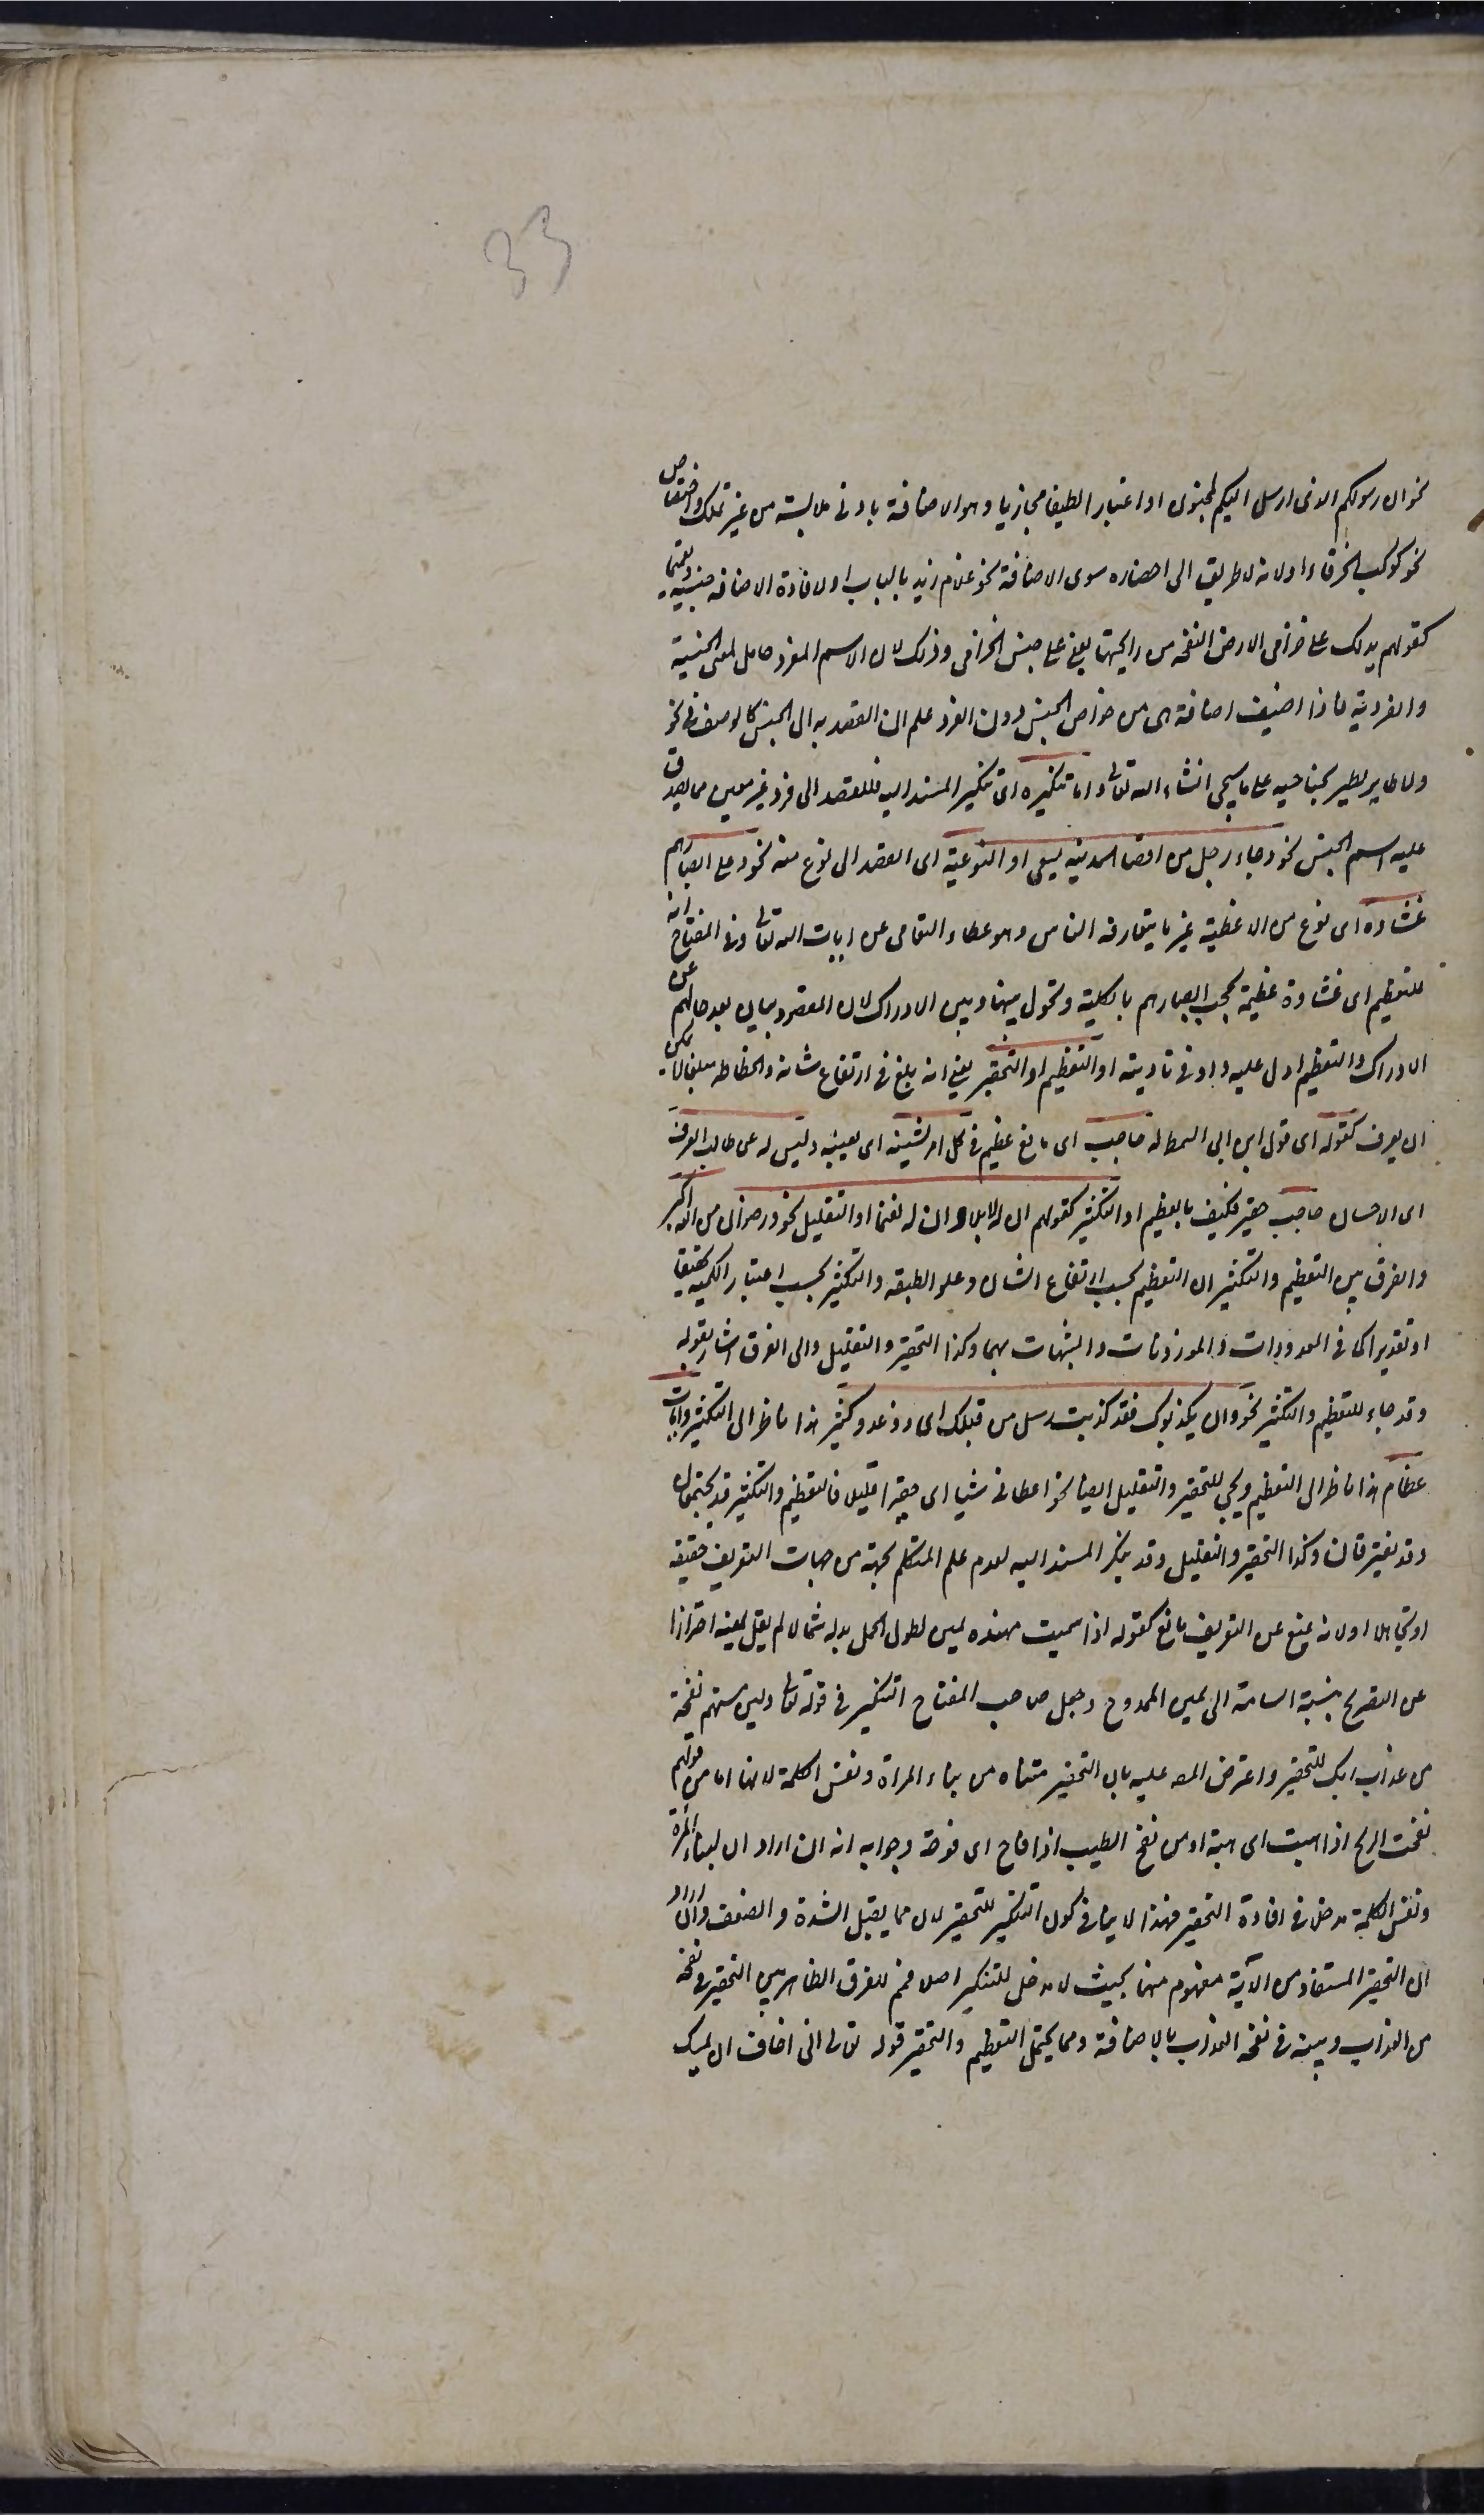 33
نحو ان رسولكم الذى ارسل اليكم لمجنون او اعتبار الطيفا مجازيا وهو الاضافة بادنى ملابسة من غير تملك واختصاص
نحو كوكب الخرقاء او لانه لا طريق الى احضاره سوى الاضافة نحو غلام زيد بالباب او لافادة الاضافة جنسية وتعميما
كقولهم يدلك على خزامى الارض النفحة من رايحتها يعنى على جنس الخزامى وذلك لان الاسم المفرد حامل لمعنى الجنسية
والفردية فاذا اضيف اضافة هى من خواص الجنس دون الفرد علم ان القصد به الى الجنس كالوصف فى نحو
ولا طاير يطير بجناحيه على ما سيجى انشاء الله تعالى واما تنكيره اى تنكير المسند اليه فللقصد الى فرد غير معين مما يصدق
عليه اسم الجنس نحو وجاء رجل من اقصا المدينة يسعى او النوعية اى القصد الى نوع منه نحو وعلى ابصارهم
غشاوة اى نوع من الاغطية غير ما يتعارفه الناس وهو غطاء التعامى عن ايات الله تعالى وفى المفتاح انه
للتعظيم اى غشاوة عظيمة تحجب ابصارهم بالكلية وتحول بينها وبين الادراك لان المقصود بيان بعد حالهم عن
الادراك والتعظيم ادل عليه واوفى تاديته او التعظيم او التحقير يعنى انه بلغ فى ارتفاع شانه وانحطاطه مبلغا لا يمكن
ان يعرف كقوله اى قول ابن ابى السمط له حاجب اى مانع عظيم فى كل امر يشينه اى يعيبه وليس له عن طالب العرف
اى الاحسان حاجب حقير فكيف بالعظيم او التكثير كقولهم ان له لابلا وان له لغنما او التقليل نحو ورضوان من الله اكبر
والفرق بين التعظيم والتكثير ان التعظيم بحسب ارتفاع الشان وعلو الطبقة والتكثير بحسب اعتبار الكمية تحقيقا
او تقديرا كما فى المعدودات والموزونات والمشبهات بهما وكذا التحقير والتقليل والى الفرق اشار بقوله
وقد جاء للتعظيم والتكثير نحو وان يكذبوك فقد كذبت رسل من قبلك اى ذوو عدد كثير هذا ناظر الى التكثير وايات
عظام هذا ناظر الى التعظيم ويجى للتحقير والتقليل ايضا نحو اعطانى شيئا اى حقيرا قليلا فالتعظيم والتكثير قد يجتمعان
وقد يفترقان وكذا التحقير والتقليل وقد ينكر المسند اليه لعدم علم المتكلم بجهة من جهات التعريف حقيقة
او تجاهلا او لانه يمنع عن التعريف مانع كقوله اذا سئمت مهنده يمين لطول الحمل بدله شمالا لم يقل يمينه احترازا
عن التصريح بنسبة السامة الى يمين الممدوح وجعل صاحب المفتاح التنكير فى قوله تعالى ولئن مستهم نفحة
من عذاب ربك للتحقير واعترض المص عليه بان التحقير مستفاد من بناء المراة ونفس الكلمة لانها اما من قولهم
نفحت الريح اذا هبت اى هبة او من نفح الطيب اذا فاح اى فوحة وجوابه انه ان اراد ان لبناء المرة
ونفس الكلمة مدخلا فى افادة التحقير فهذا لا ينافى كون التنكير للتحقير لانه مما يقبل الشدة والضعف وان اراد
ان التحقير المستفاد من الآية مفهوم منهما بحيث لا مدخل للتنكير اصلا فمم للفرق الظاهر بين التحقير فى نفحة
من العذاب وبينه فى نفحة العذاب بالاضافة ومما يحتمل التعظيم والتحقير قوله تعالى انى اخاف ان يمسك